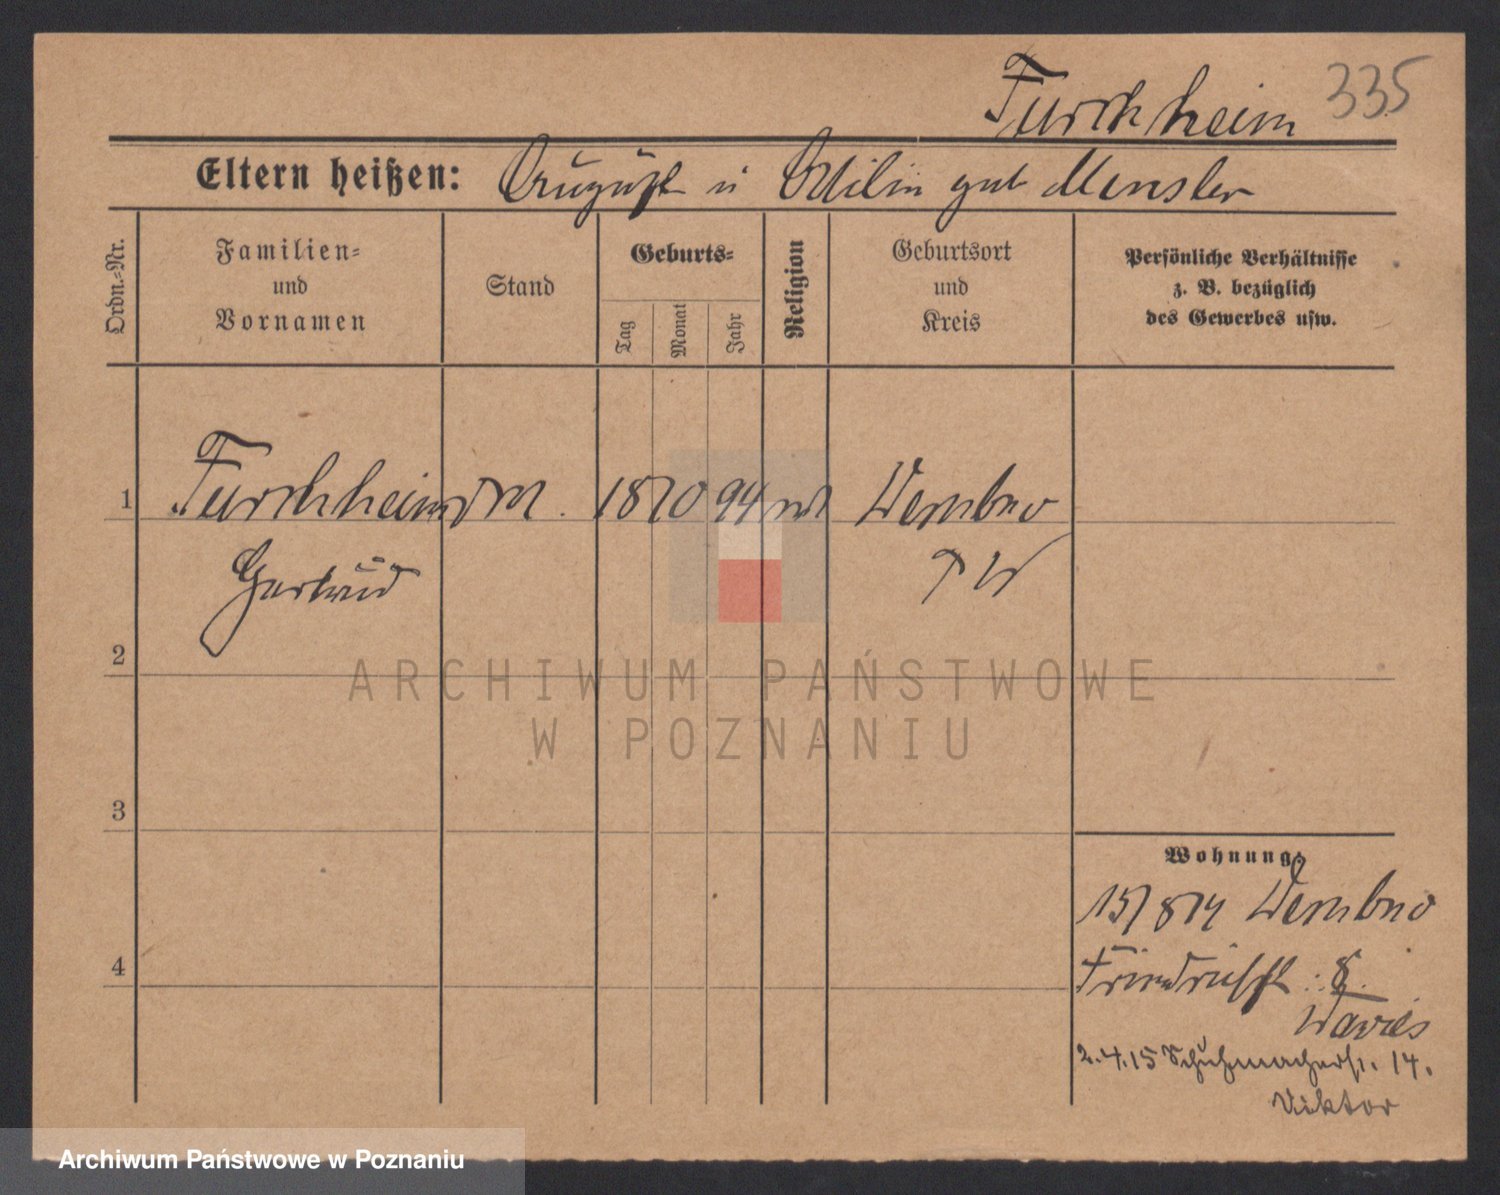 Furchheim 335
Eltern heißen: August u Ottilie geb Menster
Ordn.-Nr.
Familien-
und
Vornamen
Stand
Geburts-
Tag
Monat
Jahr
Religion
Geburtsort
und
Kreis
Persönliche Verhältnisse
z. B. bezüglich
des Gewerbes usw.
1 Furchheim 18 10 94
Gertrud
2
3
4
ARCHIWUM PAŃSTWOWE
W POZNANIU
Wohnung:
15/8 14
Friedrichst. 8.
2.4.15 Schuhmacherst. 14.
Viktor
Archiwum Państwowe w Poznaniu